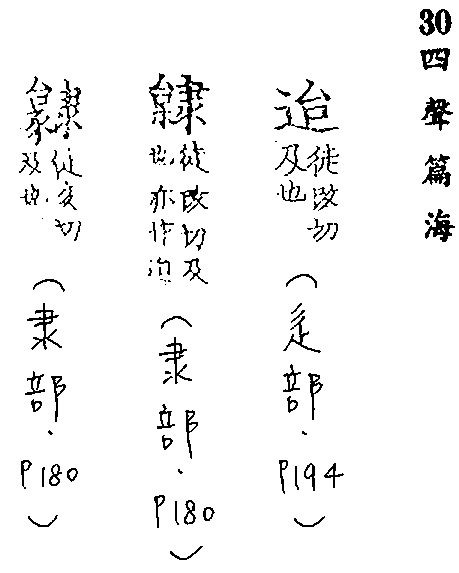 30四聲篇海
迨 徒改切及也（辵部．P194）
徒改切及也亦作迨（隶部．P180）
切及也（隶部．P180）